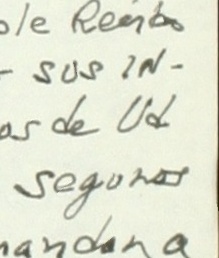 ole Recibo
sus in-
os de Ud
segunos
mandan a